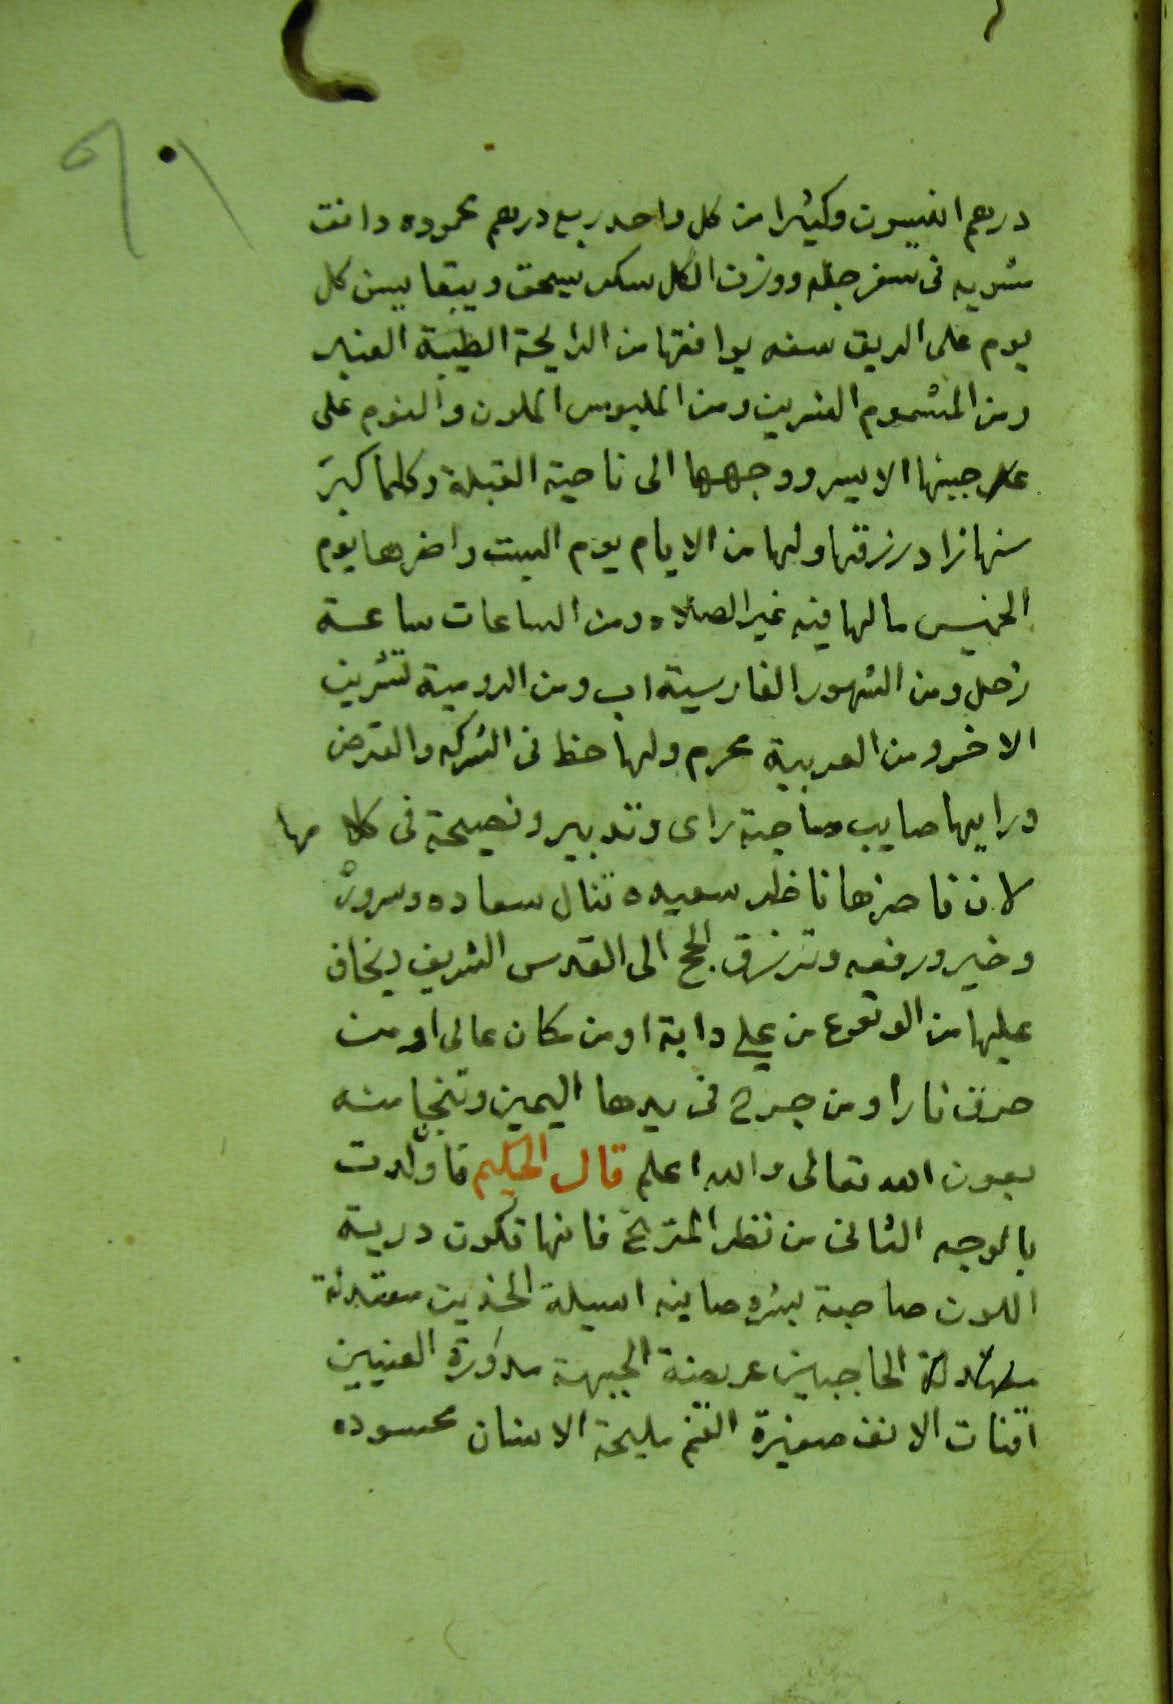 درهم افيون وكثيرا من كل واحد ربع درهم محموده دانق
مشويه فى سفرجله ووزن الكل سكر يسحق ويتعا بين كل
يوم على الريق سفه يوافقها من الرايحة الطيبة العنبر
ومن المشموم النسرين ومن الملبوس الملون والنوم على
على جبينها الايسر ووجهها الى ناحية القبلة وكلما كبر
سنها زاد رزقها ولها من الايام يوم السبت واضرها يوم
الخميس ما لها فيه غير الصلاه ومن الساعات ساعة
زحل ومن الشهور الفارسية اب ومن الرومية تشرين
الاخر ومن العربية محرم ولها حظ فى الشركه والقرض
ورايها صايب صاحبة راى وتدبير ونصيحة فى كلامها
لان ناضرها ناظر سعيده تنال سعاده وسرور
وخير ورفعه وترزق الحج الى القدس الشريف ويخاف
عليها من الوقوع من على دابة او من مكان عالى او من
حرق نار او من جرح فى يدها اليمين وتنجا منه
بعون الله تعالى والله اعلم قال الحكيم فان ولدت
بالوجه الثانى من نظر المريخ فانها تكون درية
اللون صاحبة بشره صافيه اسيلة الخدين معتدلة
الحاجبين عريضة الجبهة مدورة العينين
اقنات الانف صغيرة الفم مليحة الاسنان محسوده